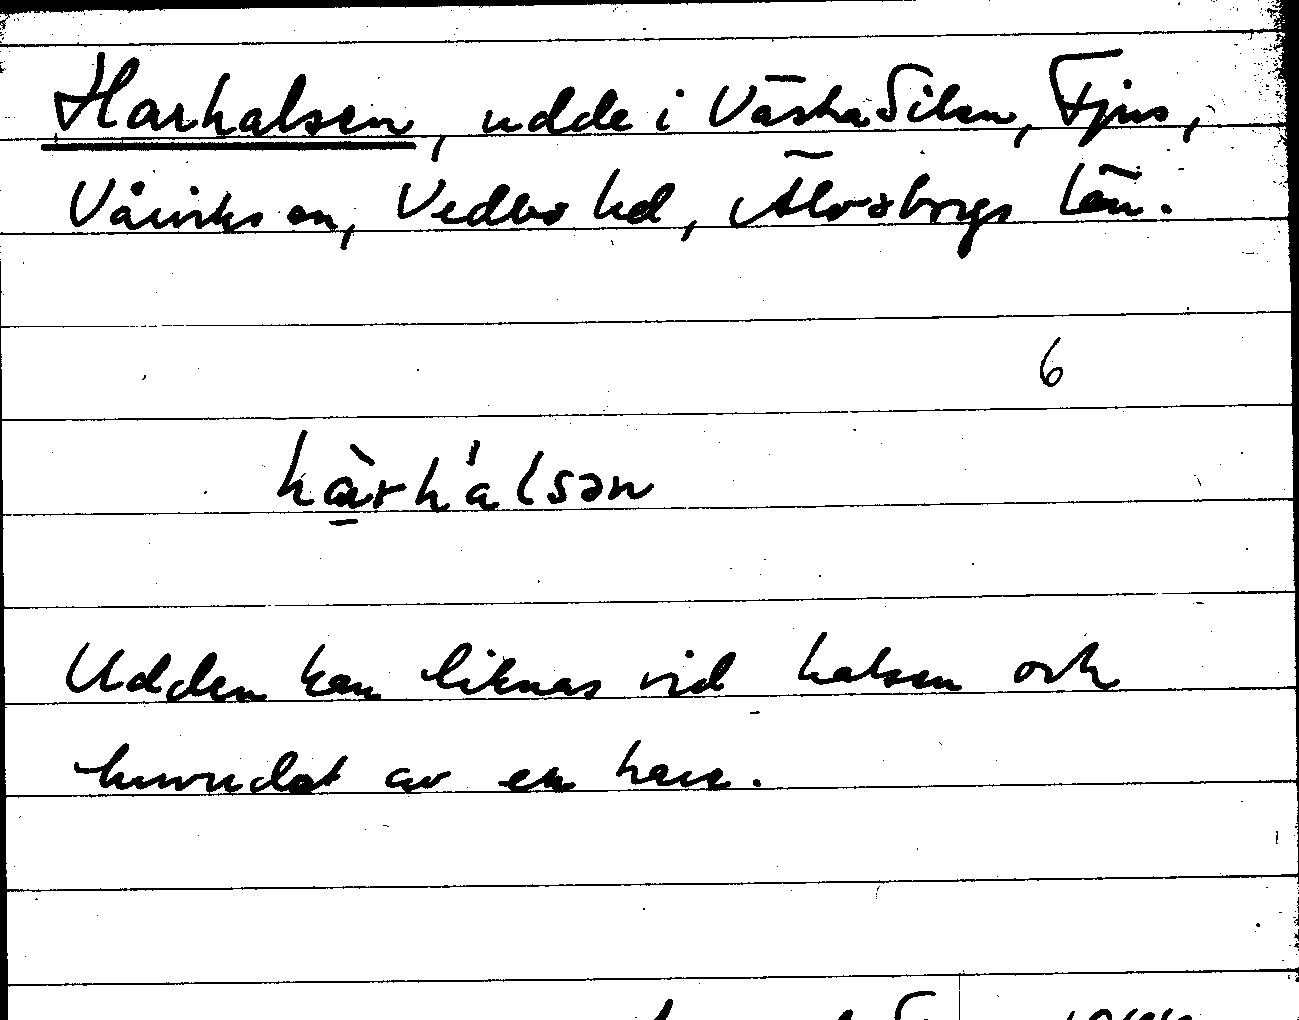 Harhalsen, udde i Västra Silen, Fjus,
Vårviks sn, Vedbo hd, Älvsborgs län.
6
hàrhálsən
Udden kan liknas vid halsen och
huvudet av en hare.